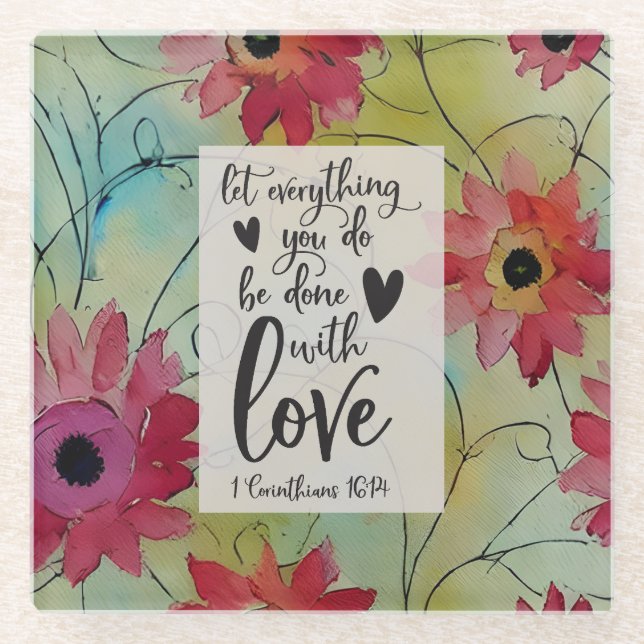 let everything
you do
be done
with
love
1 Corinthians 16:14